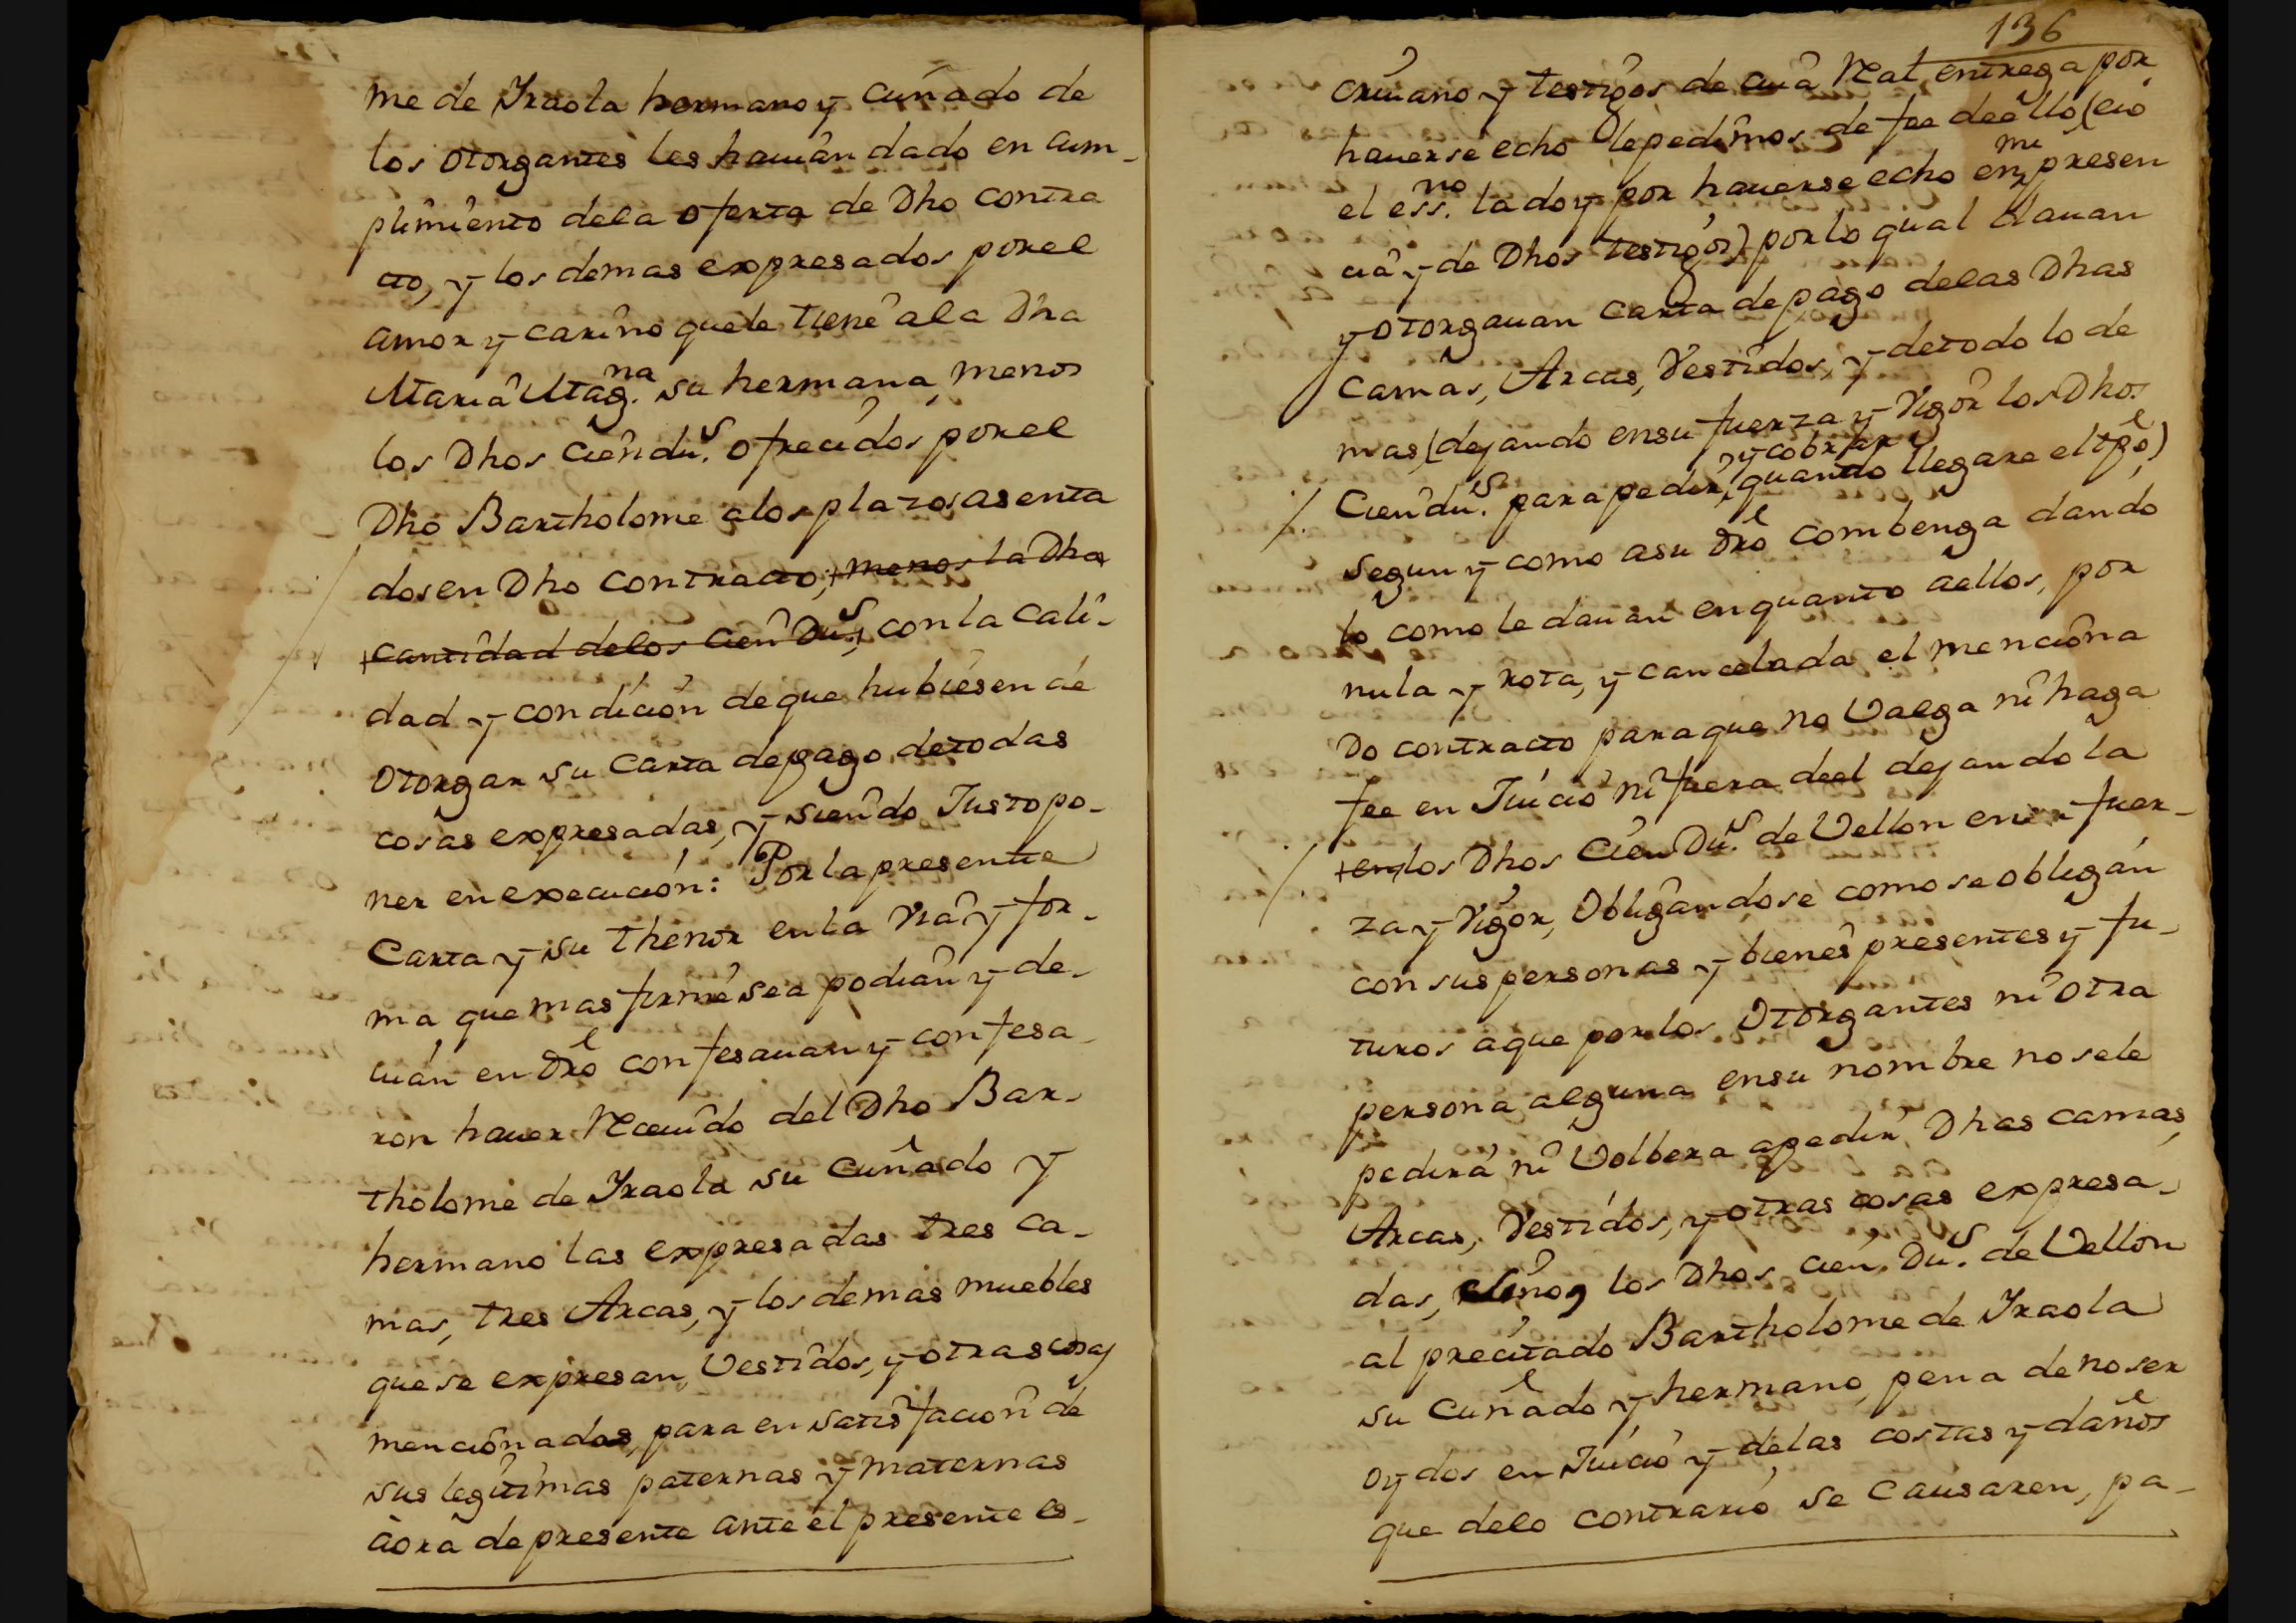 me de Yraola hermano y cuñado de
los otorgantes les hauian dado en cum-
plimiento dela oferta de Dho contra
cto, y los demas expresados porel
amor y cariño quele tiene ala Dha
Maria Magna. su hermana, menos
los Dhos cien dus. ofrecidos porel
Dho Bartholome alos plazos asenta
dos en Dho contracto, + menos la Dha
+ cantidad delos cien Dus. + con la cali-
dad y condicion deque hubiesen de
otorgar su carta depago, detodas
cosas expresadas, y siendo Justo po-
ner en execucion: Por la presente
Carta y su thenor en la via y for-
ma que mas firme sea podian y de-
uian en dro confesauan y confesa-
ron hauer Receuido del Dho Bar-
tholome de Yraola su cuñado y
hermano las expresadas tres ca-
mas, tres Arcas, y los demas muebles
que se expresan, Vestidos, y otras cosas
mencionadas, para en satisfacion de
sus legitimas paternas y maternas
aora depresente ante el presente es-
136
criuano y testigos de cuia Real entrega por
hauerse echo le pedimos de fee de ello (eio
el essno. la doy por hauerse echo en mi presen
cia y de Dhos testigos) por lo qual dauan
y otorgauan carta depago delas Dhas
Camas, Arcas, Vestidos, y detodo lo de
mas (dejando ensu fuerza y Vigor los Dhos
Cien dus. para pedir, y cobrar quando llegare el tpo)
segun y como asu dro combenga dando
lo como le dauan enquanto aellos, por
nula y rota, y cancelada el menciona
do contracto paraque no Valga ni haga
fee en Juicio ni fuera deel dejando la
+ en los Dhos Cien Dus. de Vellon en su fuer-
za y Vigor, Obligandose como se obligan
con sus personas y bienes presentes y fu-
turos aque por los Otorgantes ni otra
persona alguna ensu nombre no se le
pedira ni Volbera apedir Dhas camas,
Arcas, Vestidos, y otras cosas expresa-
das, sino los Dhos cien Dus. de Vellon
al precitado Bartholome de Yraola
su Cuñado y hermano, pena de no ser
oydos en Juicio y delas costas y daños
que delo contrario se causaren, pa-